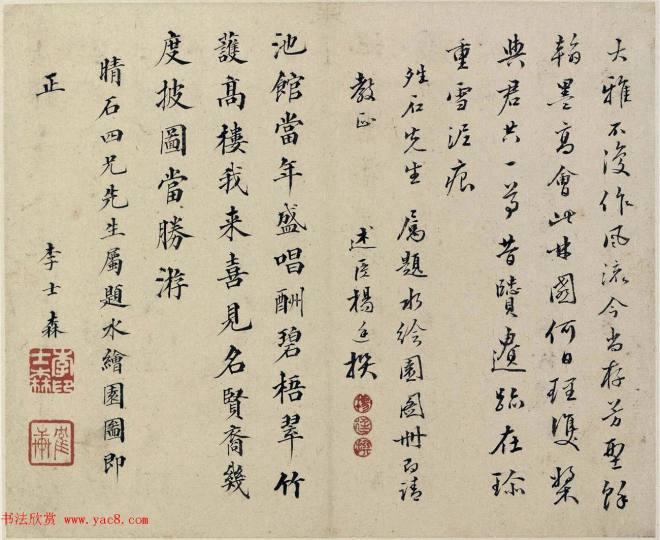 大雅不復作風流今尚存芳型餘
翰墨高會此林園何日理雙槳
與君共一尊昔賢遺跡在珍
重雪泥痕
石先生屬題水绘園圖冊即請
教正 述臣楊廷撰
楊廷撰
池館當年盛唱酬碧梧翠竹
護高樓我来喜見名賢裔幾
度披圖當勝游
晴石四兄先生屬題水繪園圖即
正 李士森
李士森印
书法欣赏 www.yac8.com